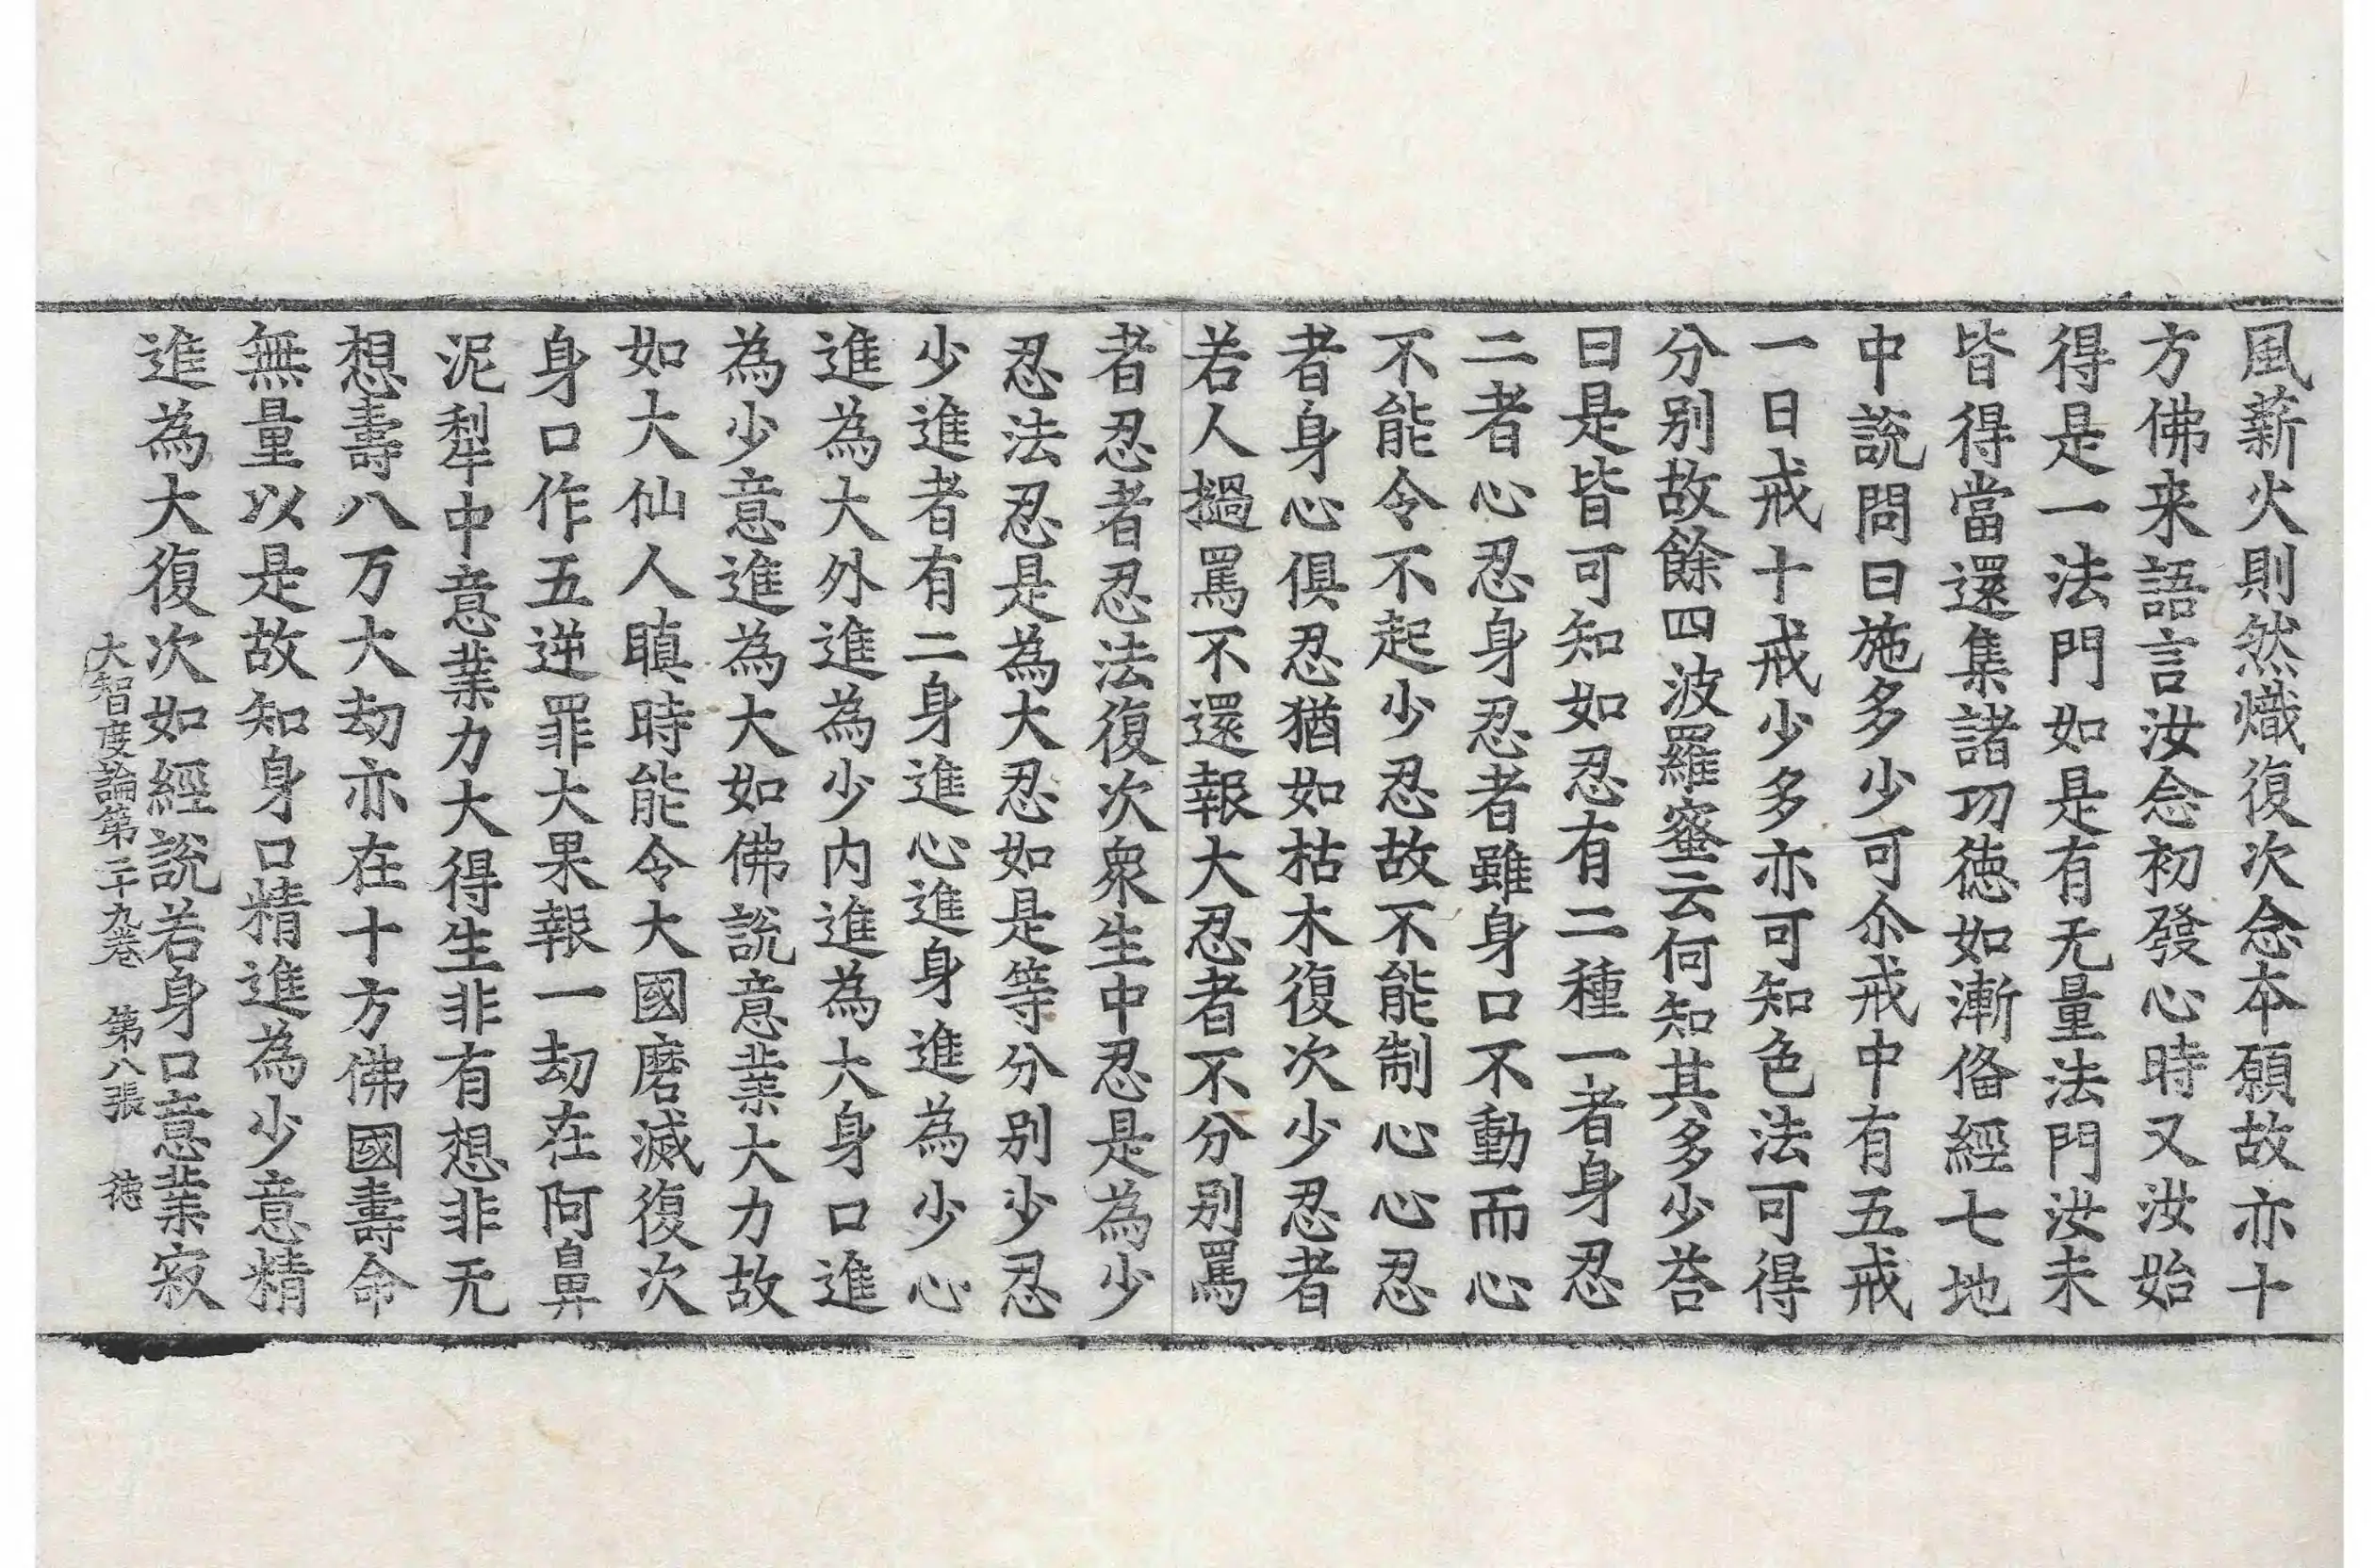 風薪火則然熾復次念本願故亦十
方佛来語言汝念初發心時又汝始
得是一法門如是有无量法門汝未
皆得當還集諸功徳如漸俻經七地
中說問曰施多少可尒戒中有五戒
一日戒十戒少多亦可知色法可得
分别故餘四波羅蜜云何知其多少荅
曰是皆可知如忍有二種一者身忍
二者心忍身忍者雖身口不動而心
不能令不起少忍故不能制心心忍
者身心俱忍猶如枯木復次少忍者
若人撾罵不還報大忍者不分别罵
者忍者忍法復次衆生中忍是為少
忍法忍是為大忍如是等分别少忍
少進者有二身進心進身進為少心
進為大外進為少内進為大身口進
為少意進為大如佛說意業大力故
如大仙人瞋時能令大國磨滅復次
身口作五逆罪大果報一劫在阿鼻
泥犁中意業力大得生非有想非无
想壽八万大劫亦在十方佛國壽命
無量以是故知身口精進為少意精
進為大復次如經說若身口意業寂
大智度論第二十九卷　第八張　徳